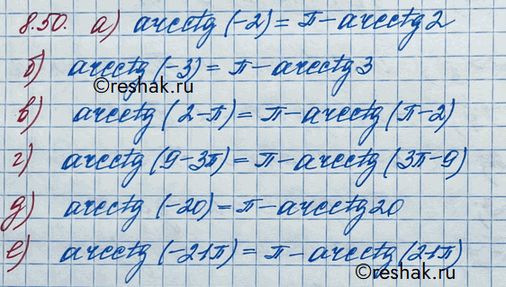 8.50. а) arcctg (-2) = π - arcctg 2
б) arcctg (-3) = π - arcctg 3
©reshak.ru
в) arcctg (2-π) = π - arcctg (π-2)
г) arcctg (9-3π) = π - arcctg (3π-9)
д) arcctg (-20) = π - arcctg 20
е) arcctg (-21π) = π - arcctg (21π)
©reshak.ru